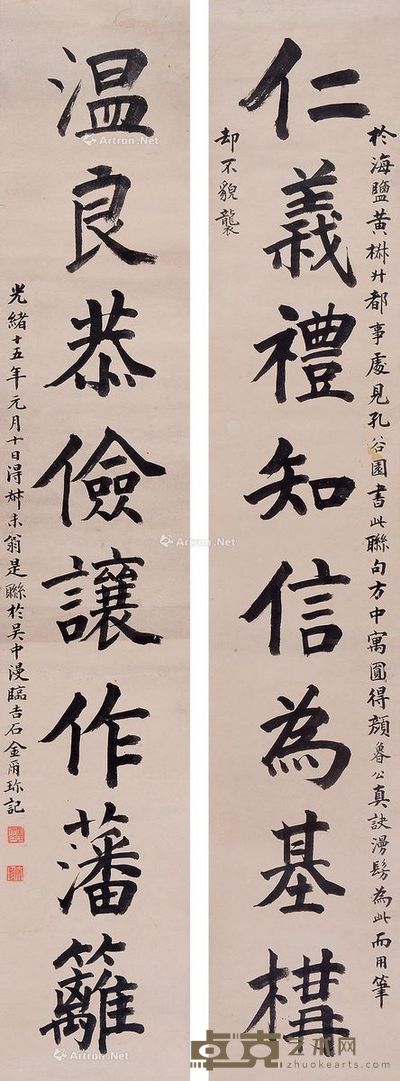 於海鹽黃椒升都事處見孔谷園書此聯句方中寓圓得顏魯公真訣漫髣為此而用筆
却不貌襲
仁義禮知信為基構
温良恭儉讓作藩籬
光緒十五年元月十日得叔未翁是聯於吳中漫臨吉石金爾珍記
Artron.Net
卓克艺术网
www.zhuokearts.com